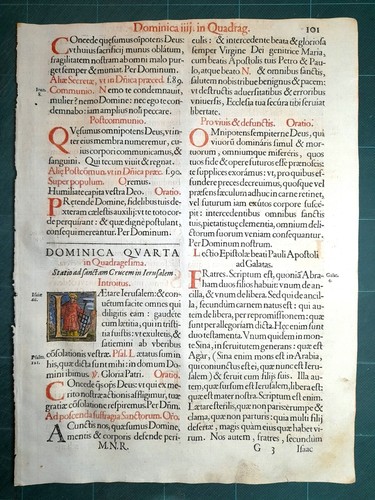 Dominica iiij. in Quadrag. 101
Concede quęsumus oĩpotens Deus:
vt huius sacrificij munus oblatum,
fragilitatem nostram ab omni malo pur-
get semper & muniat. Per Dominum.
Alię Secretæ, vt in Dñica præced. f. 89.
Communio. Nemo te condemnauit,
mulier? nemo Domine: nec ego te con-
demnabo: iam amplius noli peccare.
Postcommunio.
Quęsumus omnipotens Deus, vt in-
ter eius membra numeremur, cu-
ius corpori communicamus, &
sanguini. Qui tecum viuit & regnat.
Alię Postcõmun. vt in Dñica præc. f. 90.
Super populum. Oremus.
Humiliate capita vestra Deo. Oratio.
Prętende Domine, fidelibus tuis de-
xteram cælestis auxilij: vt te toto cor-
de perquirant: & quæ dignè postulant,
consequi mereantur. Per Dominum.
DOMINICA QVARTA
in Quadragesima.
Statio ad sanctam Crucem in Ierusalem.
Introitus.
Isaiæ
Lætare Ierusalem: & con-
uentum facite omnes qui
diligitis eam: gaudete
cum lætitia, qui in tristi-
tia fuistis: vt exultetis, &
satiemini ab vberibus
cõsolationis vestræ. Psal. Lætatus sum in
his, quæ dicta sunt mihi: in domum Do-
mini ibimus. ℣. Gloria Patri. Oratio.
Concede quęs oĩps Deus: vt qui ex me-
rito nostræ actionis affligimur, tuæ
gratiæ cõsolatione respiremus. Per Dñm.
Ad poscenda suffragia Sanctorum. Oro.
A cunctis nos, quæsumus Domine,
mentis & corporis defende peri-
M.N.R.
culis: & intercedente beata & gloriosa
semper Virgine Dei genitrice Maria,
cum beatis Apostolis tuis Petro & Pau-
lo, atque beato N. & omnibus sanctis,
salutem nobis tribue benignus & pacem:
vt destructis aduersitatibus & erroribus
vniuersis, Ecclesia tua secura tibi seruiat
libertate.
Pro viuis & defunctis. Oratio.
Omnipotens sempiterne Deus, qui
viuorũ dominaris simul & mor-
tuorum, omniumque misereris, quos
tuos fide & opere futuros esse prænoscis:
te supplices exoramus: vt, pro quibus ef-
fundere preces decreuimus, quosque vel
præsens sæculum adhuc in carne retinet,
vel futurum iam exutos corpore susce-
pit: intercedentibus omnibus sanctis
tuis, pietatis tuę clementia, omnium deli-
ctorum suorum veniam consequantur.
Per Dominum nostrum.
Lectio Epistolæ beati Pauli Apostoli
ad Galatas.
Galat.
Fratres. Scriptum est, quoniã Abra-
ham duos filios habuit: vnum de ancil-
la, & vnum de libera. Sed qui de ancil-
la, secundum carnem natus est: qui au-
tem de libera, per repromissionem: quæ
sunt per allegoriam dicta. Hęc enim sunt
duo testamenta. Vnum quidem in mon-
te Sina, in seruitutem generans: quæ est
Agar, (Sina enim mons est in Arabia,
qui coniunctus est ei, quæ nunc est Ierusa-
lem) & seruit cum filijs suis. Illa au-
tem, quæ sursum est Ierusalem, libera est:
quæ est mater nostra. Scriptum est enim.
Lætare sterilis, quæ non paris: erumpe &
clama, quæ non parturis: quia multi filij
desertæ, magis quàm eius quæ habet vi-
rum. Nos autem, fratres, secundùm
G 3 Isaac